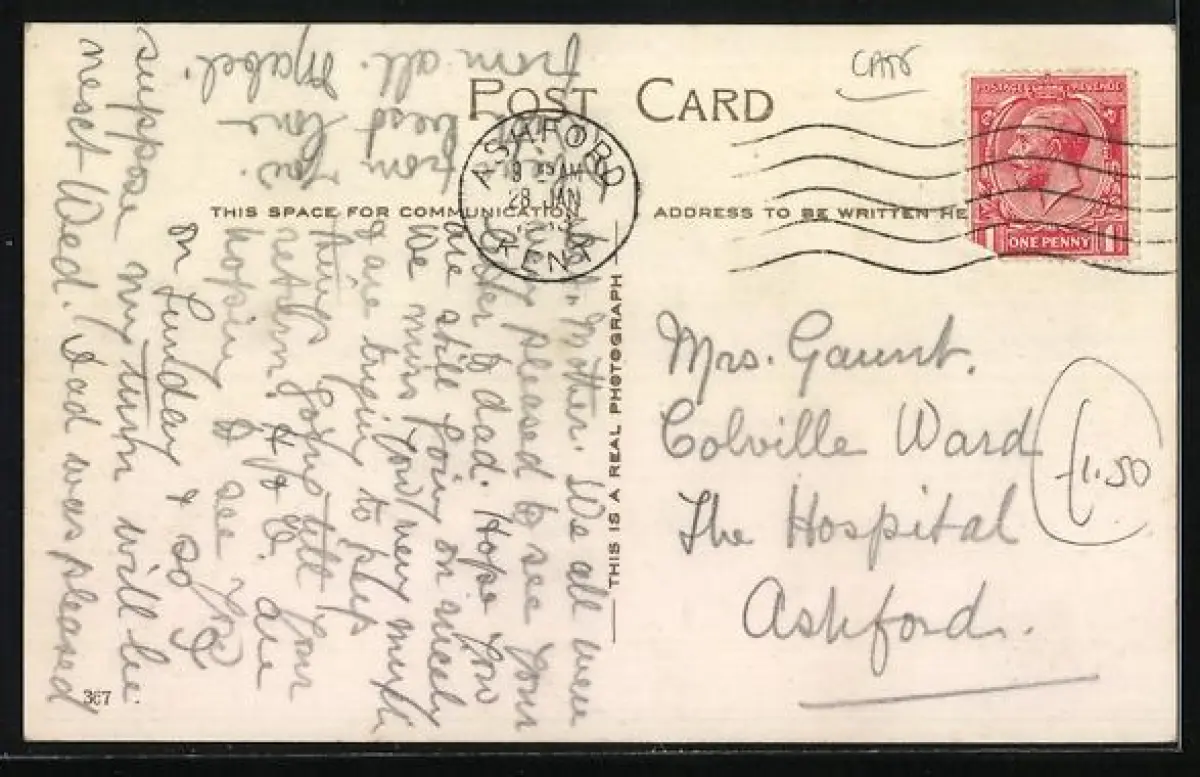 CATS
POST CARD
ASHFORD
KENT
28 JAN
THIS SPACE FOR COMMUNICATION
ADDRESS TO BE WRITTEN HE
POSTAGE REVENUE
1 ONE PENNY 1
THIS IS A REAL PHOTOGRAPH
Mother. We all were
very pleased to see your
letter to dad. Hope you
are still going on nicely
We miss you very much
& are trying to keep
things going till your
return. & E. are
hoping to see you
on Sunday & so I
suppose my turn will be
next Wed. Dad was pleased
best love
from all. Mabel.
Mrs. Gaunt.
Colville Ward
The Hospital
Ashford.
£1.50
367